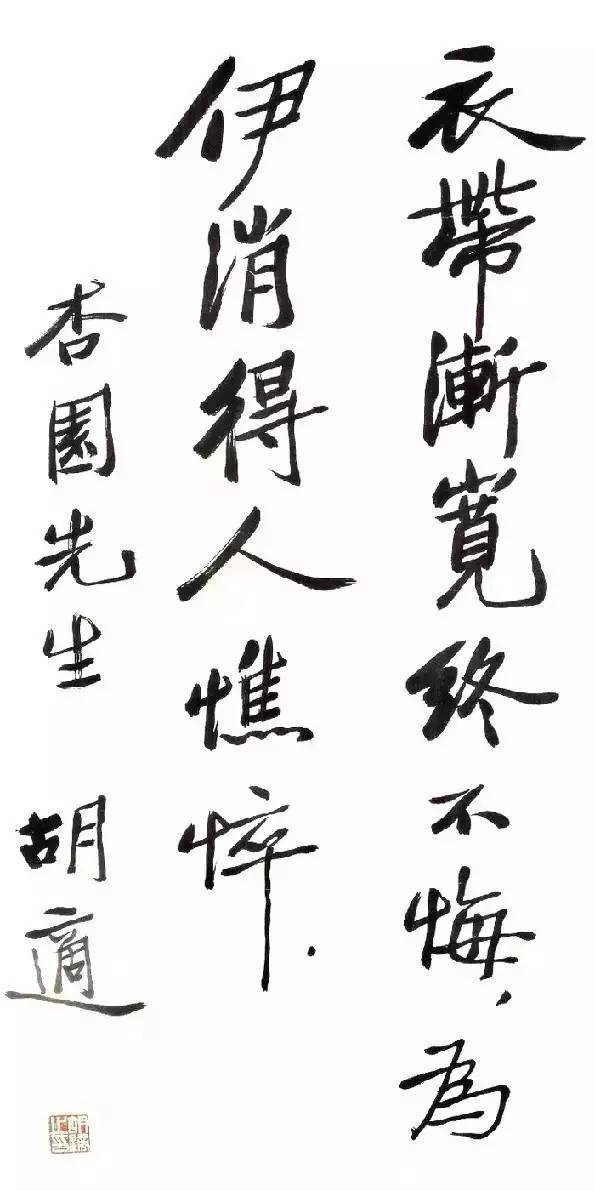 衣帶漸寬終不悔，為
伊消得人憔悴．
杏園先生　胡適